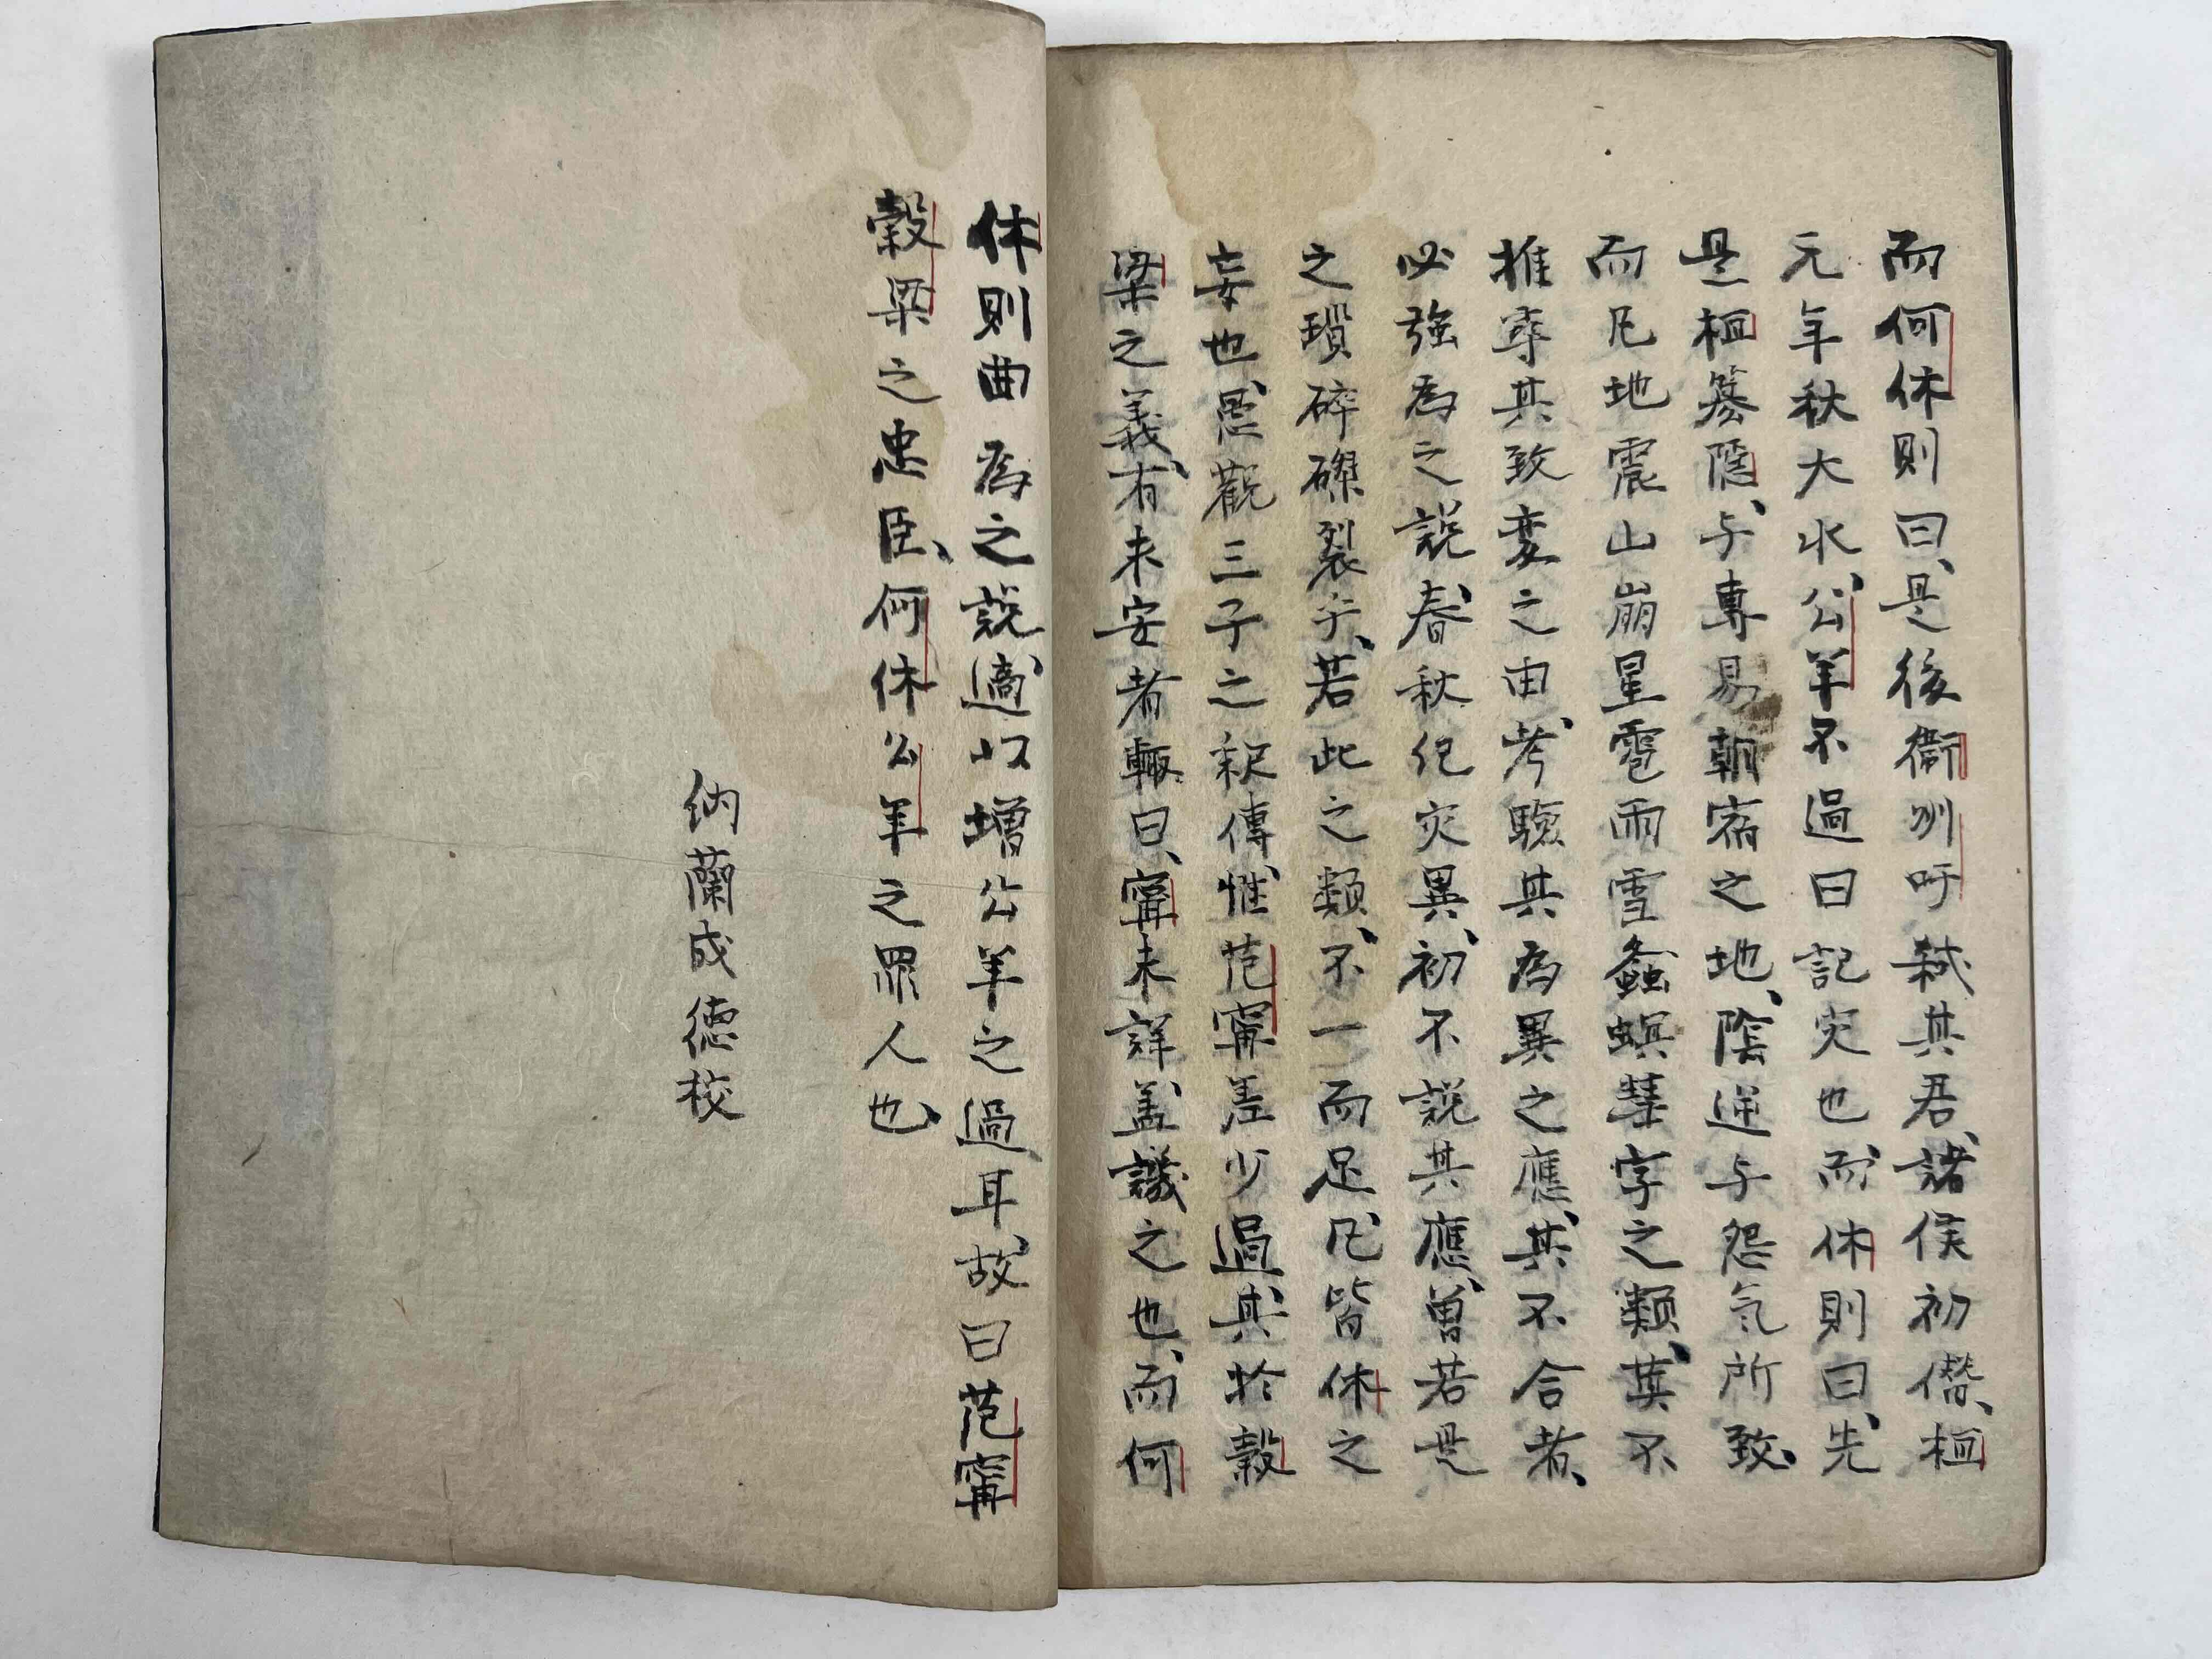 而何休則曰、是後衛州吁弑其君、諸侯初僭、桓
元年秋大水、公羊不過曰記灾也、而休則曰、先
是桓簒隠、与専易朝宿之地、陰逆与怨気所致、
而凡地震山崩星雹雨雪螽螟彗孛之類、莫不
推尋其致変之由、考驗其為異之應、其不合者、
必強為之説、春秋紀灾異、初不説其應、曽若是
之瑣碎磔裂乎、若此之類、不一而足、凡皆休之
妄也、愚觀三子之釈傳、惟范甯差少過、其於穀
梁之義、有未安者輙曰、甯未詳、盖譏之也、而何
休則曲為之説、適以增公羊之過耳、故曰范甯
穀梁之忠臣、何休公羊之罪人也、
納蘭成徳校